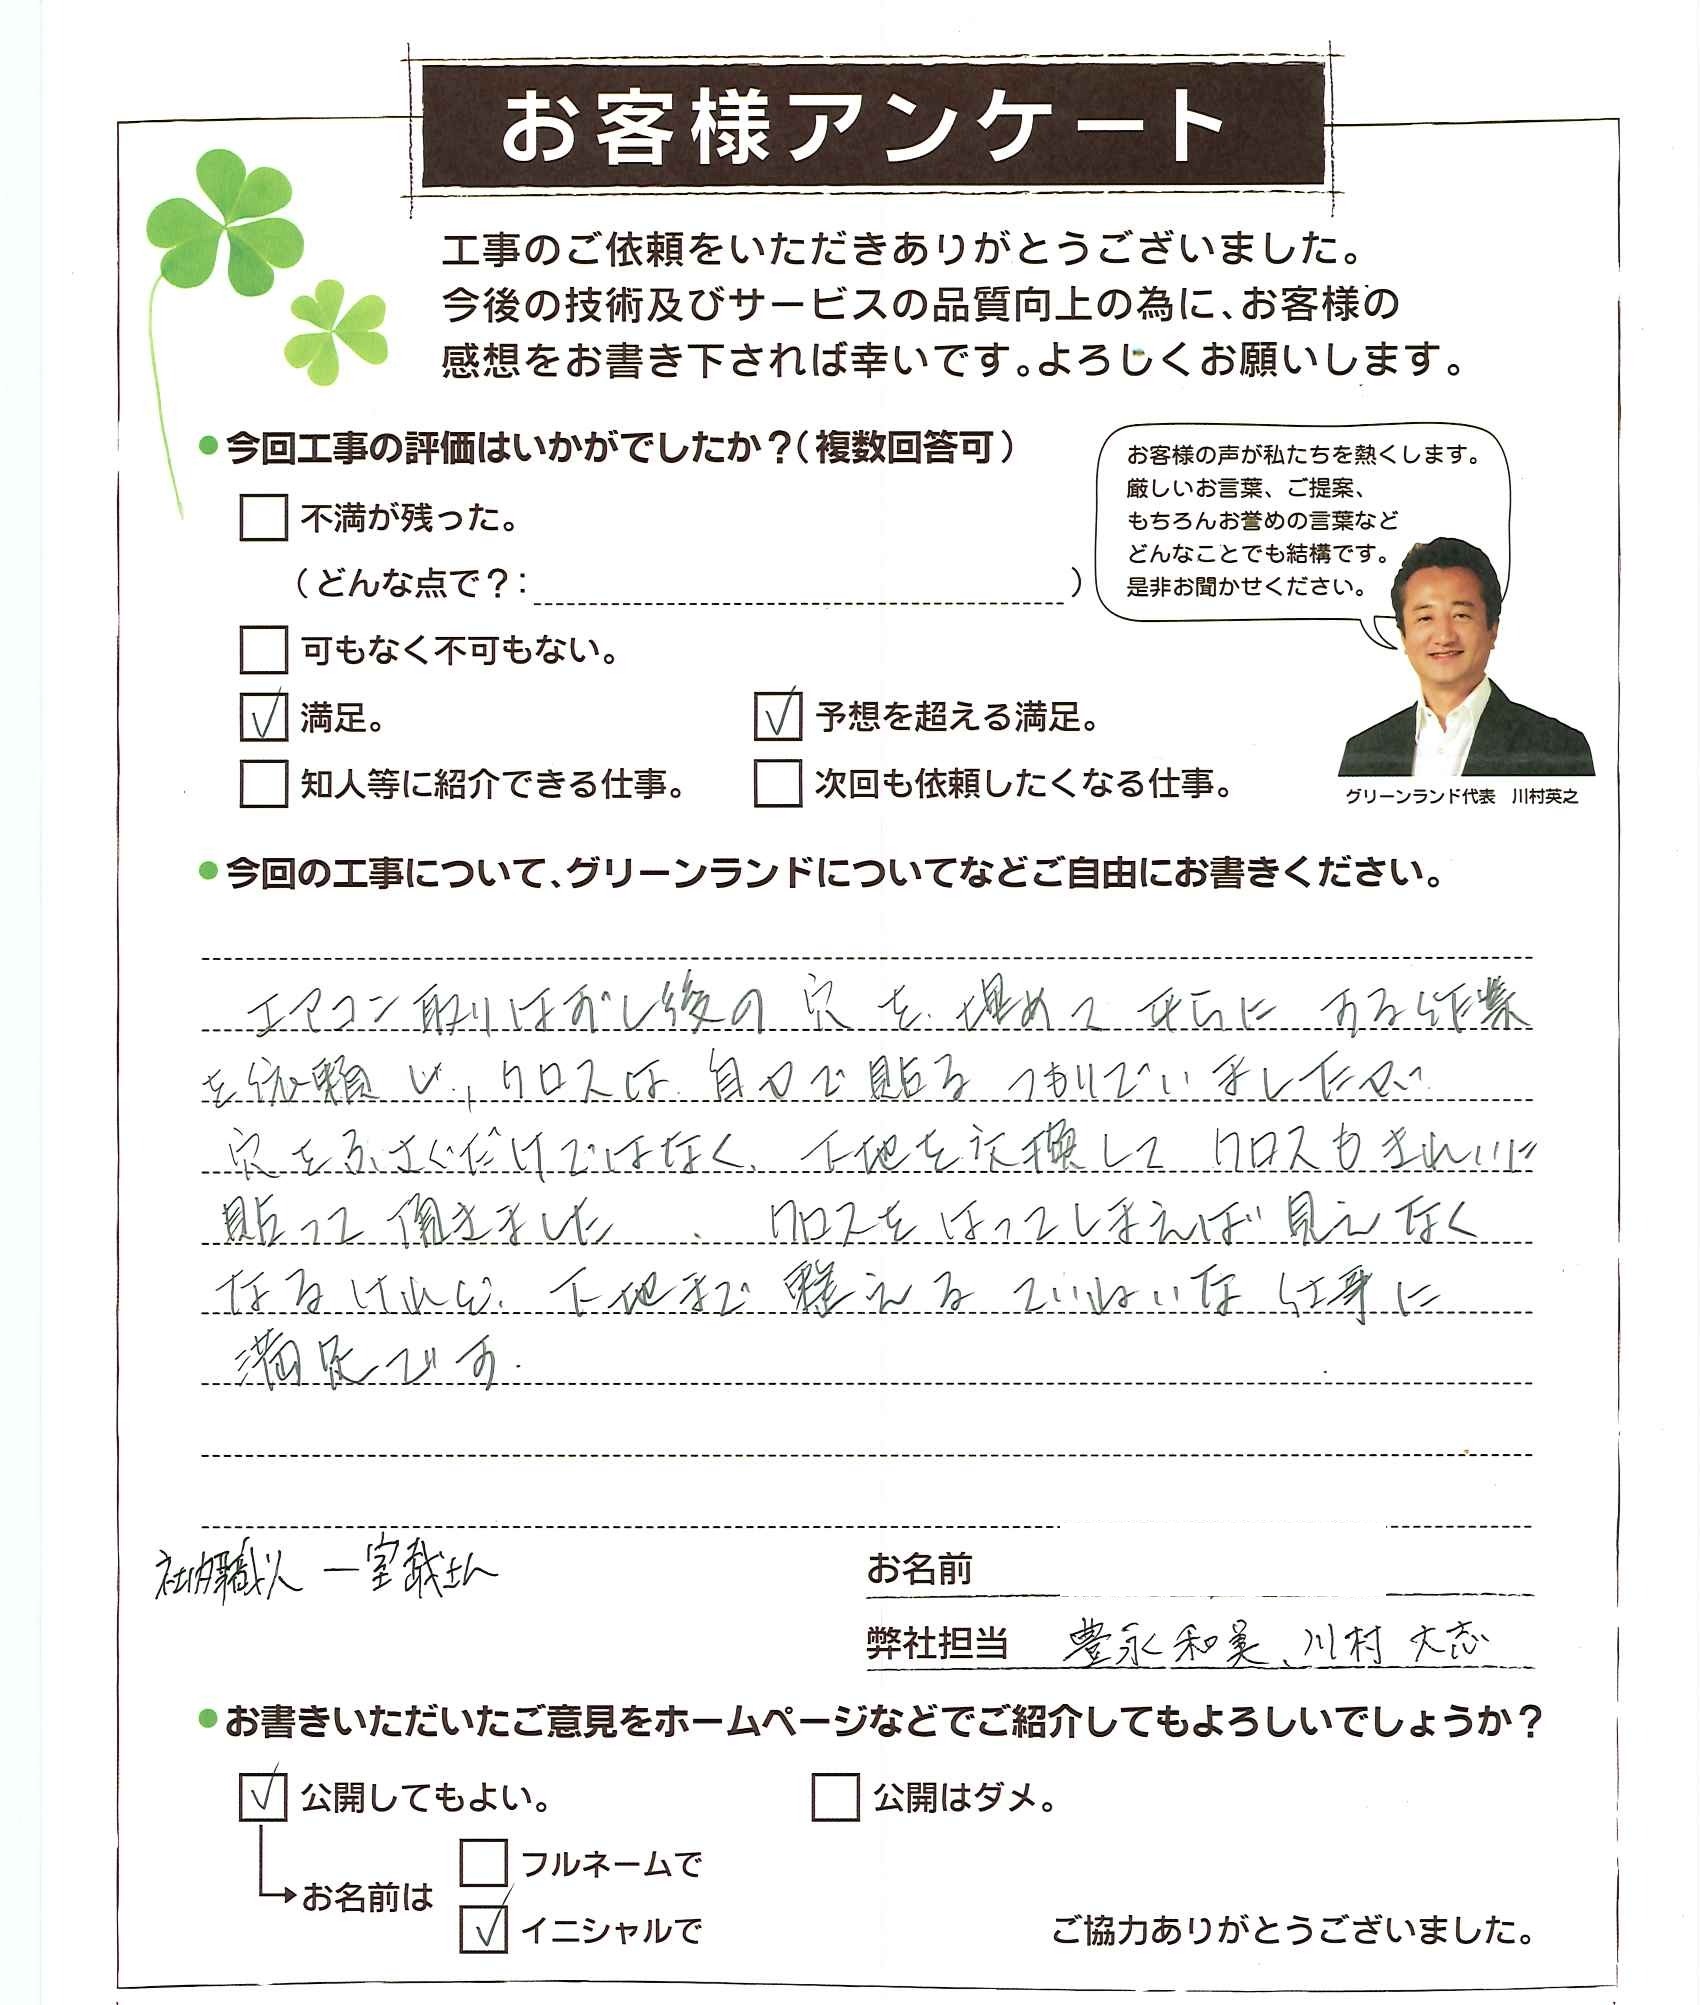 お客様アンケート
工事のご依頼をいただきありがとうございました。
今後の技術及びサービスの品質向上の為に、お客様の
感想をお書き下されば幸いです。よろしくお願いします。
●今回工事の評価はいかがでしたか？（複数回答可）
お客様の声が私たちを熱くします。
厳しいお言葉、ご提案、
もちろんお誉めの言葉など
どんなことでも結構です。
是非お聞かせください。
グリーンランド代表　川村英之
□ 不満が残った。
（どんな点で？：　　　）
□ 可もなく不可もない。
☑ 満足。　☑ 予想を超える満足。
□ 知人等に紹介できる仕事。　□ 次回も依頼したくなる仕事。
●今回の工事について、グリーンランドについてなどご自由にお書きください。
エアコン取りはずし後の穴を埋めて平らにする作業
を依頼し、クロスは自分で貼るつもりでいましたが
穴をふさぐだけではなく、下地を交換してクロスもきれいに
貼って頂きました、クロスをはってしまえば見えなく
なるけれど、下地まで整えるていねいな仕事に
満足です.
社内職人 一室哉さん
お名前
弊社担当　豊永和美、川村大志
●お書きいただいたご意見をホームページなどでご紹介してもよろしいでしょうか？
☑ 公開してもよい。　□ 公開はダメ。
お名前は　□ フルネームで
☑ イニシャルで
ご協力ありがとうございました。